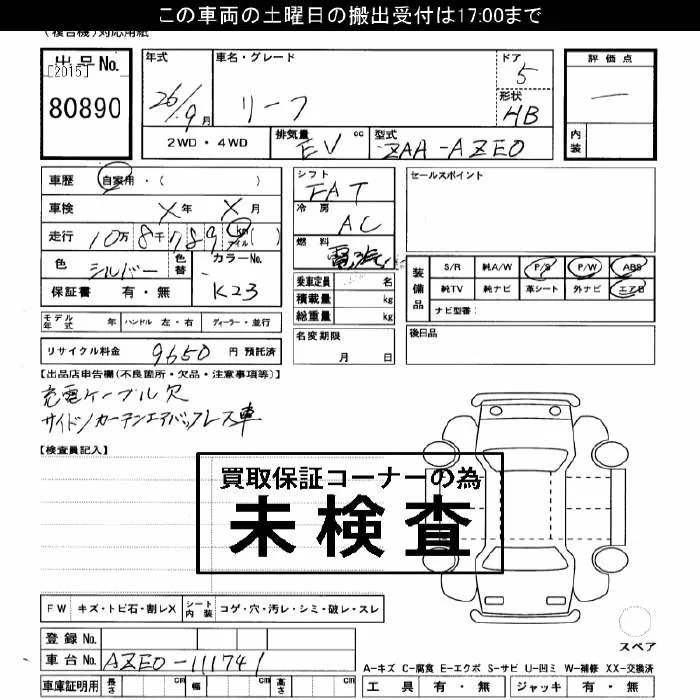 この車両の土曜日の搬出受付は17:00まで
(複合機)対応用紙
出品No.
[2015]
80890
年式 26/9月
車名・グレード リーフ
ドア 5
形状 HB
2WD・4WD
排気量 EV cc
型式 ZAA-AZE0
評価点 —
内装
車歴 自家用・( )
車検 X年 X月
走行 10万8千789 km マイル( )
色 シルバー
色替
カラーNo. K23
保証書 有・無
シフト FAT
冷房 AC
燃料 電気
乗車定員 名
積載量 kg
総重量 kg
セールスポイント
装備品
S/R 純A/W P/S P/W ABS
純TV 純ナビ 革シート 外ナビ エアB
ナビ型番:
モデル年式 年 ハンドル 左・右 ディーラー・並行
名変期限 月 日
後日品
リサイクル料金 9650 円 預託済
【出品店申告欄(不良箇所・欠品・注意事項等)】
充電ケーブル欠
サイド/カーテンエアバックレス車
【検査員記入】
買取保証コーナーの為
未検査
FW キズ・トビ石・割レX シート内装 コゲ・穴・汚レ・シミ・破レ・スレ
登録No.
車台No. AZE0-111741
車庫証明用 長さ cm 幅 cm 高さ cm
スペア
A-キズ C-腐食 E-エクボ S-サビ U-凹ミ W-補修 XX-交換済
工具 有・無 ジャッキ 有・無